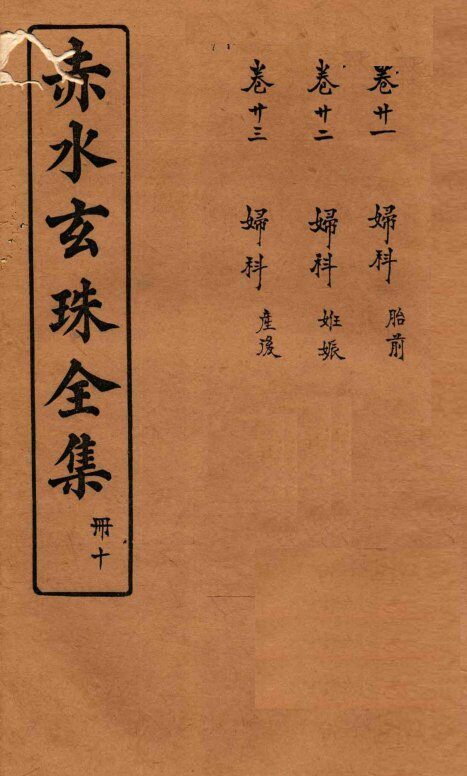 卷廿一 婦科 胎前
卷廿二 婦科 妊娠
卷廿三 婦科 產後
赤水玄珠全集 冊十